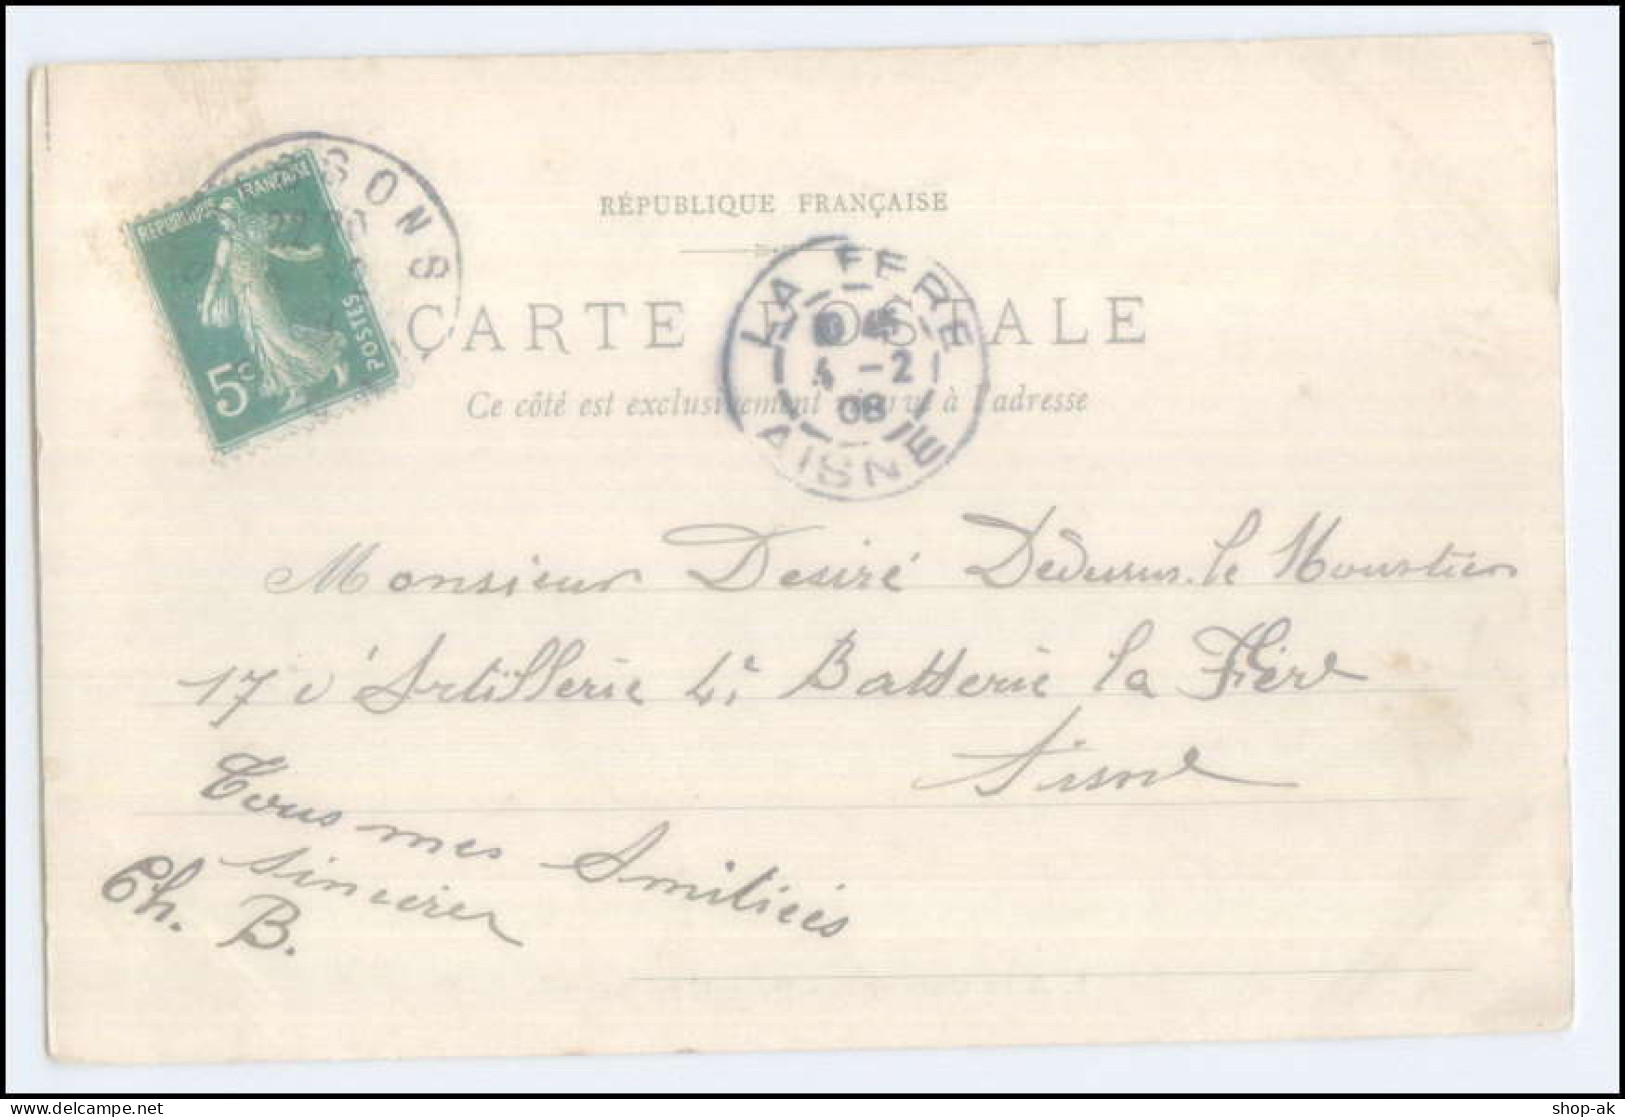 RÉPUBLIQUE FRANÇAISE
CARTE POSTALE
Ce côté est exclusivement réservé à l'adresse
RÉPUBLIQUE FRANÇAISE
POSTES
5c
SONS
LA FERE
4 -2
08
AISNE
Monsieur Desiré Dedessus. le Moustier
17 d'Artillerie 4e Batterie la Fère
Aisne
Tous mes Amitiées
sincères
Ch. B.
shop-ak